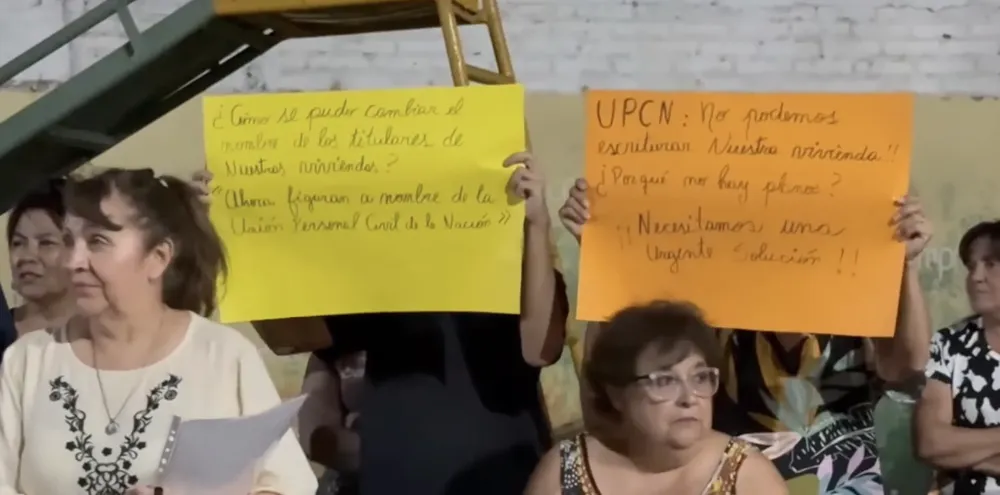 ¿Cómo se pudo cambiar el
nombre de los titulares de
Nuestras viviendas?
"Ahora figuran a nombre de la
Unión Personal Civil de la Nación"
UPCN: No podemos
escriturar Nuestra vivienda"
¿Porqué no hay planos?
¡¡Necesitamos una
Urgente Solución!!